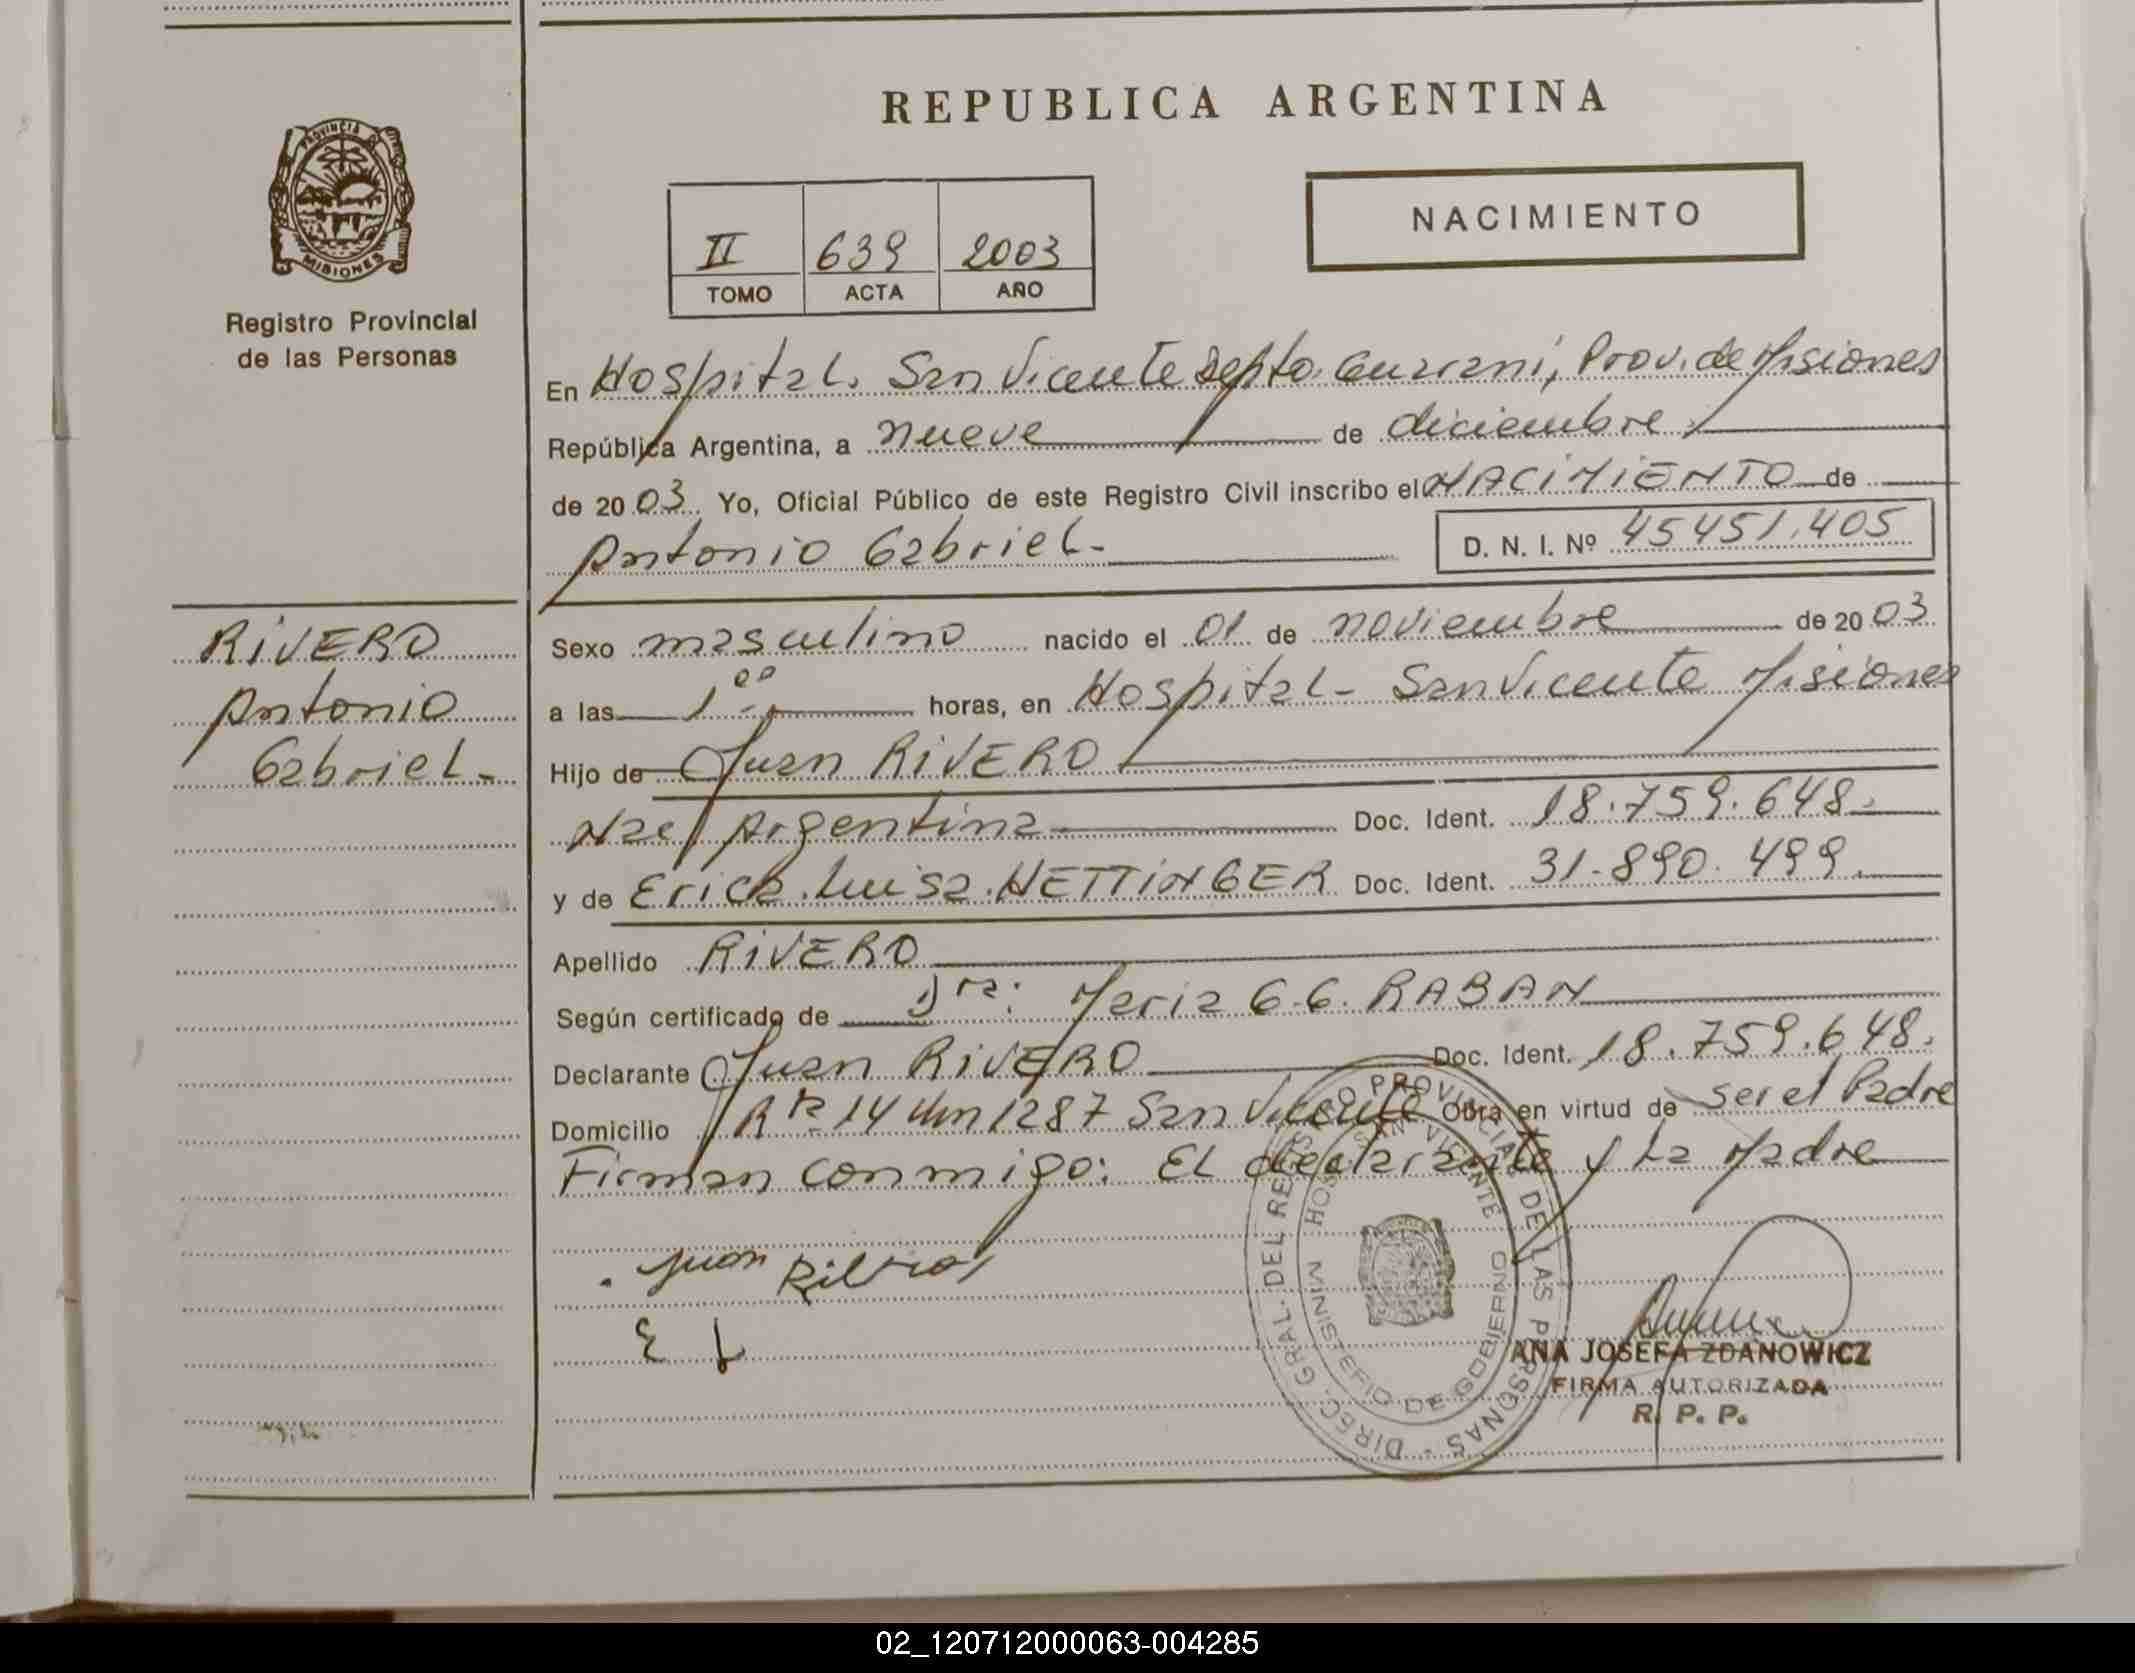 REPUBLICA ARGENTINA
PROVINCIA DE
MISIONES
Registro Provincial
de las Personas
NACIMIENTO
II 639 2003
TOMO ACTA AÑO
En Hospital. San Vicente Depto. Guarani, Prov. de Misiones
República Argentina, a nueve de diciembre
de 2003. Yo, Oficial Público de este Registro Civil inscribo el NACIMIENTO de
Antonio Gabriel.- D. N. I. Nº 45451.405
RIVERO
Antonio
Gabriel.-
Sexo masculino nacido el 01 de noviembre de 2003
a las 1 00 horas, en Hospital- San Vicente Misiones
Hijo de Juan RIVERO
Nac Argentina Doc. Ident. 18.759.648.
y de Erica Luisa HETTINGER Doc. Ident. 31.890.499.
Apellido RIVERO
Según certificado de Dra: Maria G.G. RABAN
Declarante Juan RIVERO Doc. Ident. 18.759.648.
Domicilio Rta 14 Km 1287 San Vicente Obra en virtud de ser el Padre
Firman conmigo: El declarante y La Madre
Juan
E L
DIREC. GRAL. DEL REGISTRO PROVINCIAL DE LAS PERSONAS
HOSP. SAN VICENTE
MINISTERIO DE GOBIERNO
ANA JOSEFA ZDANOWICZ
FIRMA AUTORIZADA
R. P. P.
02_120712000063-004285